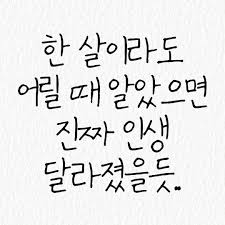 한 살이라도
어릴 때 알았으면
진짜 인생
달라졌을듯..